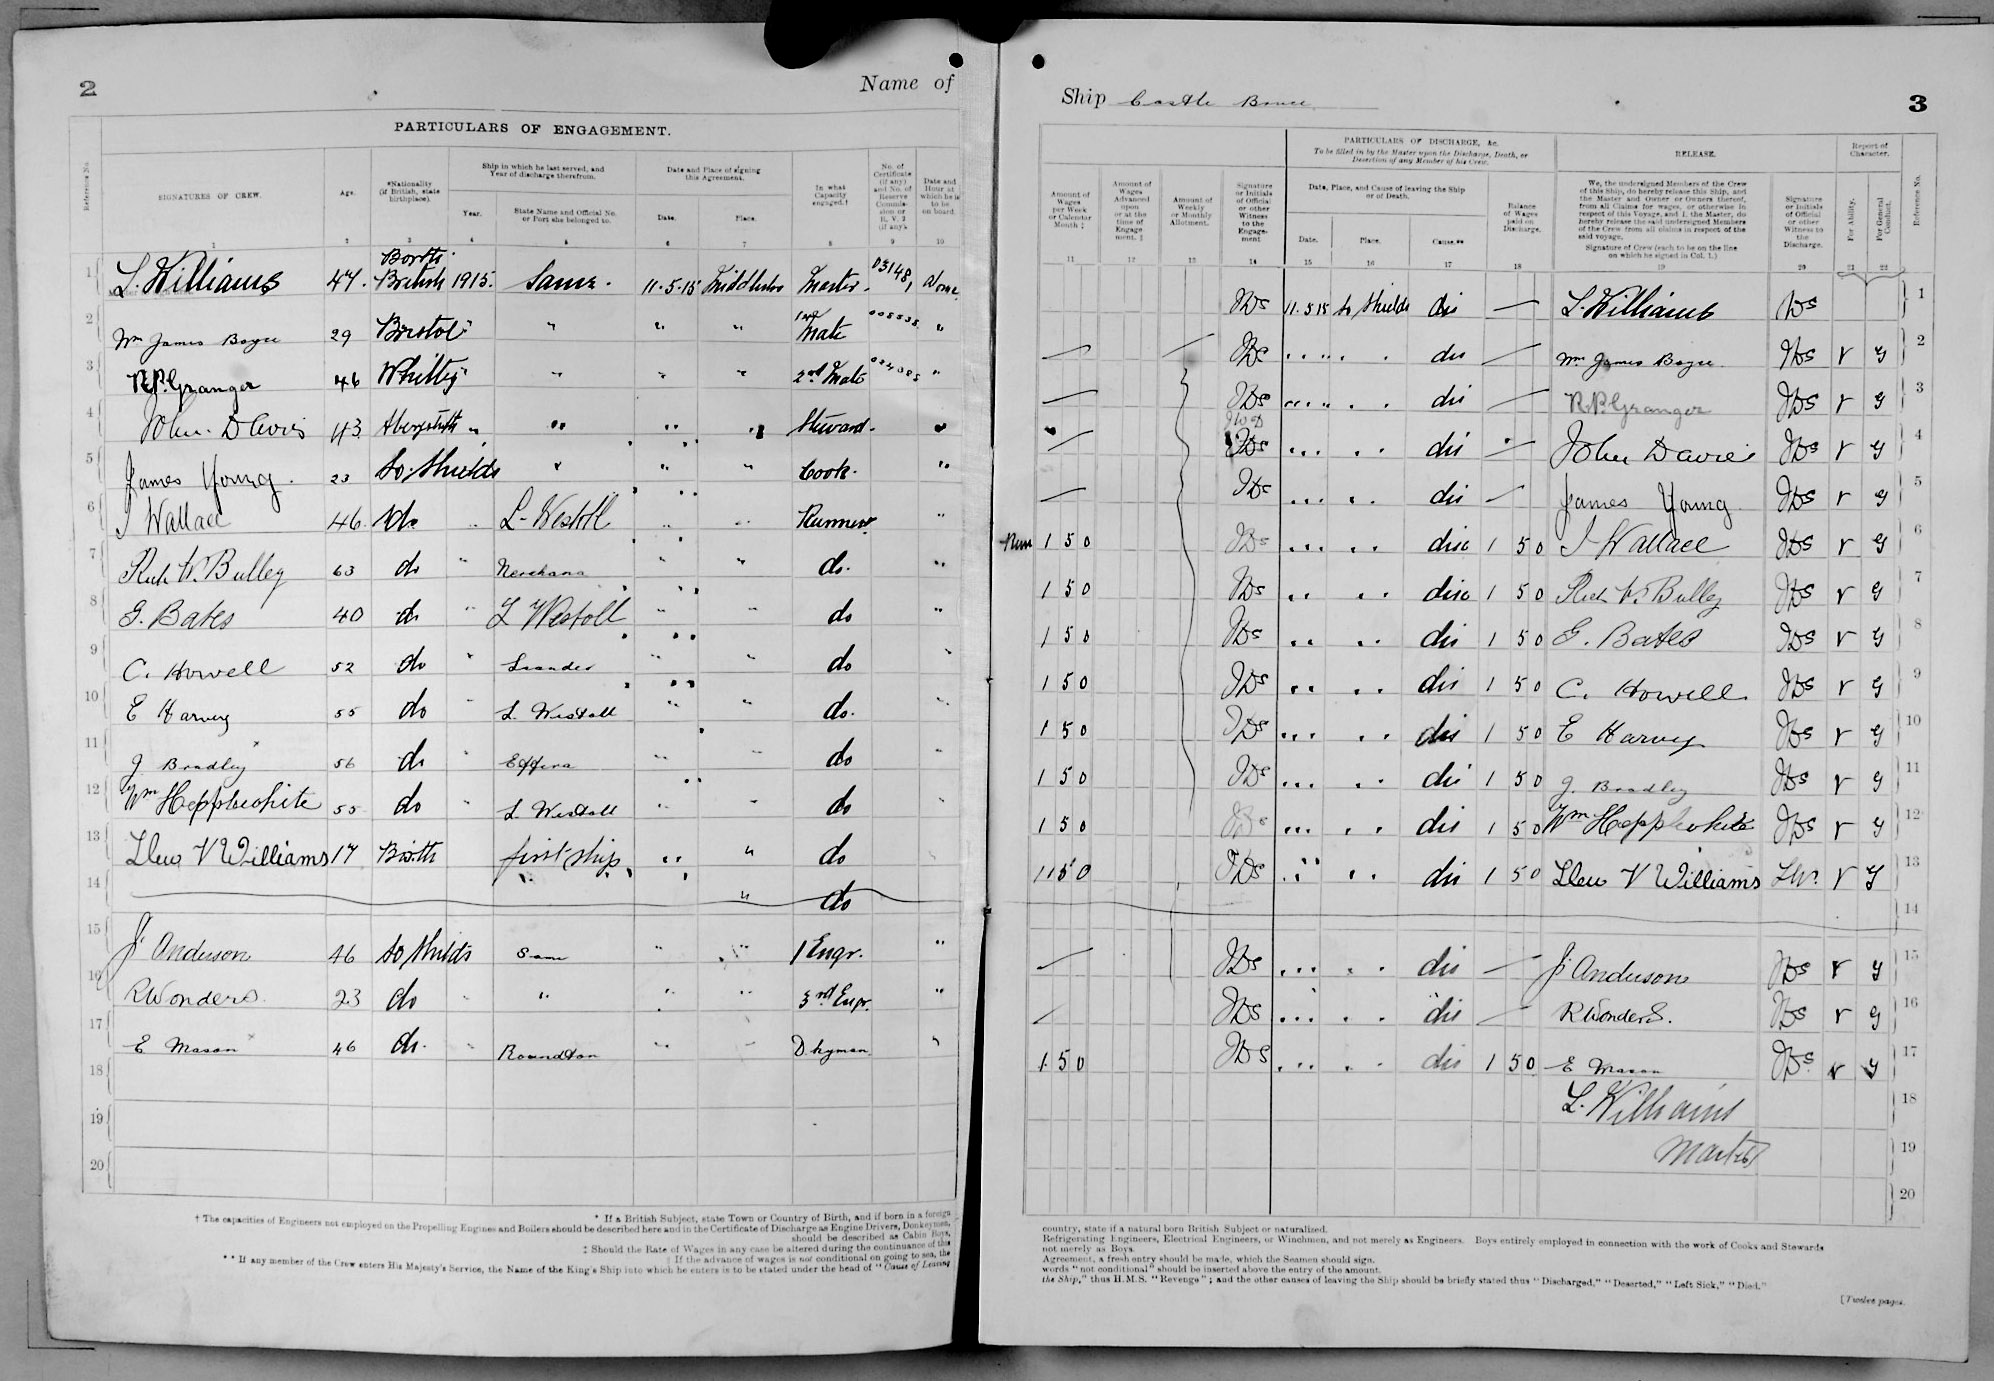 2
Name of
PARTICULARS OF ENGAGEMENT.
Reference No.
SIGNATURES OF CREW.
Age.
*Nationality (if British, state birthplace).
Ship in which he last served, and Year of discharge therefrom.
Year.
State Name and Official No. or Port she belonged to.
Date and Place of signing this Agreement.
Date.
Place.
In what Capacity engaged.†
No. of Certificate (if any) and No. of Reserve Commission or R.V. 2 (if any).
Date and Hour at which he is to be on board.
1 2 3 4 5 6 7 8 9 10
1 L. Williams 47. Borth British 1915. Same. 11.5.15 Master. 03148,
2 Wm James Bogue 29 Bristol " " " 1st Mate "
3 R.P. Granger 46 Whitby " " " 2nd Mate "
4 John Davies 43 " " " " Steward.
5 James Young. 23 So. Shields " " " Cook. "
6 J Wallace 46 do " L. Westoll " " Runner "
7 Rich W. Bulley 63 do " " " do. "
8 G. Bates 40 do " L Westoll " " do "
9 C. Howell 52 do " Leander " " do "
10 E Harvey 55 do " L. Westoll " " do. "
11 J Bradley 56 do " " " do "
12 Wm Hepplewhite 55 do " L. Westoll " " do "
13 Llew V Williams 17 Borth first ship " " do
14 " do
15 J. Anderson 46 So Shields Same " " 1 Engr. "
16 R Wonders 23 do " " " " 3rd Engr. "
17 E Mason 46 do. " Roundton " " Dkyman "
18
19
20
* If a British Subject, state Town or Country of Birth, and if born in a foreign
† The capacities of Engineers not employed on the Propelling Engines and Boilers should be described here and in the Certificate of Discharge as Engine Drivers, Donkeymen,
should be described as Cabin Boys,
‡ Should the Rate of Wages in any case be altered during the continuance of this
† If the advance of wages is not conditional on going to sea, the
** If any member of the Crew enters His Majesty's Service, the Name of the King's Ship into which he enters is to be stated under the head of "Cause of Leaving
Ship Castle Bruce
3
PARTICULARS OF DISCHARGE, &c.
To be filled in by the Master upon the Discharge, Death, or Desertion of any Member of his Crew.
RELEASE.
Report of Character.
Amount of Wages per Week or Calendar Month ‡
Amount of Wages Advanced upon or at the time of Engagement. ‡
Amount of Weekly or Monthly Allotment.
Signature or Initials of Official or other Witness to the Engagement
Date, Place, and Cause of leaving the Ship or of Death.
Date.
Place.
Cause.**
Balance of Wages paid on Discharge.
We, the undersigned Members of the Crew of this Ship, do hereby release this Ship, and the Master and Owner or Owners thereof, from all Claims for wages, or otherwise in respect of this Voyage, and I, the Master, do hereby release the said undersigned Members of the Crew from all claims in respect of the said voyage.
Signature of Crew (each to be on the line on which he signed in Col. 1.)
Signature or Initials of Official or other Witness to the Discharge.
For Ability.
For General Conduct.
Reference No.
11 12 13 14 15 16 17 18 19 20 21 22
JDS 11.5.15 So Shields dis — L. Williams 1
JDS dis Wm James Bogue JDS V G 2
JDS dis R.P. Granger JDS V G 3
JDS dis John Davies JDS V G 4
JDS dis James Young JDS V G 5
Run 1 5 0 JDS disc 1 5 0 J Wallace JDS V G 6
1 5 0 JDS disc 1 5 0 Rich W. Bulley JDS V G 7
1 5 0 JDS dis 1 5 0 G. Bates JDS V G 8
1 5 0 JDS dis 1 5 0 C. Howell JDS V G 9
1 5 0 JDS dis 1 5 0 E Harvey JDS V G 10
1 5 0 JDS dis 1 5 0 J. Bradley JDS V G 11
1 5 0 JDS dis 1 5 0 Wm Hepplewhite JDS V G 12
1 5 0 JDS dis 1 5 0 Llew V Williams LW. V G 13
14
JDS dis J. Anderson JDS V G 15
JDS dis R Wonders. JDS V G 16
1 5 0 JDS dis 1 5 0 E Mason JDS V G 17
L. Williams 18
Master 19
20
country, state if a natural born British Subject or naturalized.
Refrigerating Engineers, Electrical Engineers, or Winchmen, and not merely as Engineers. Boys entirely employed in connection with the work of Cooks and Stewards
not merely as Boys.
Agreement, a fresh entry should be made, which the Seamen should sign.
words "not conditional" should be inserted above the entry of the amount.
the Ship," thus H.M.S. "Revenge"; and the other causes of leaving the Ship should be briefly stated thus "Discharged," "Deserted," "Left Sick," "Died."
[Twelve pages.